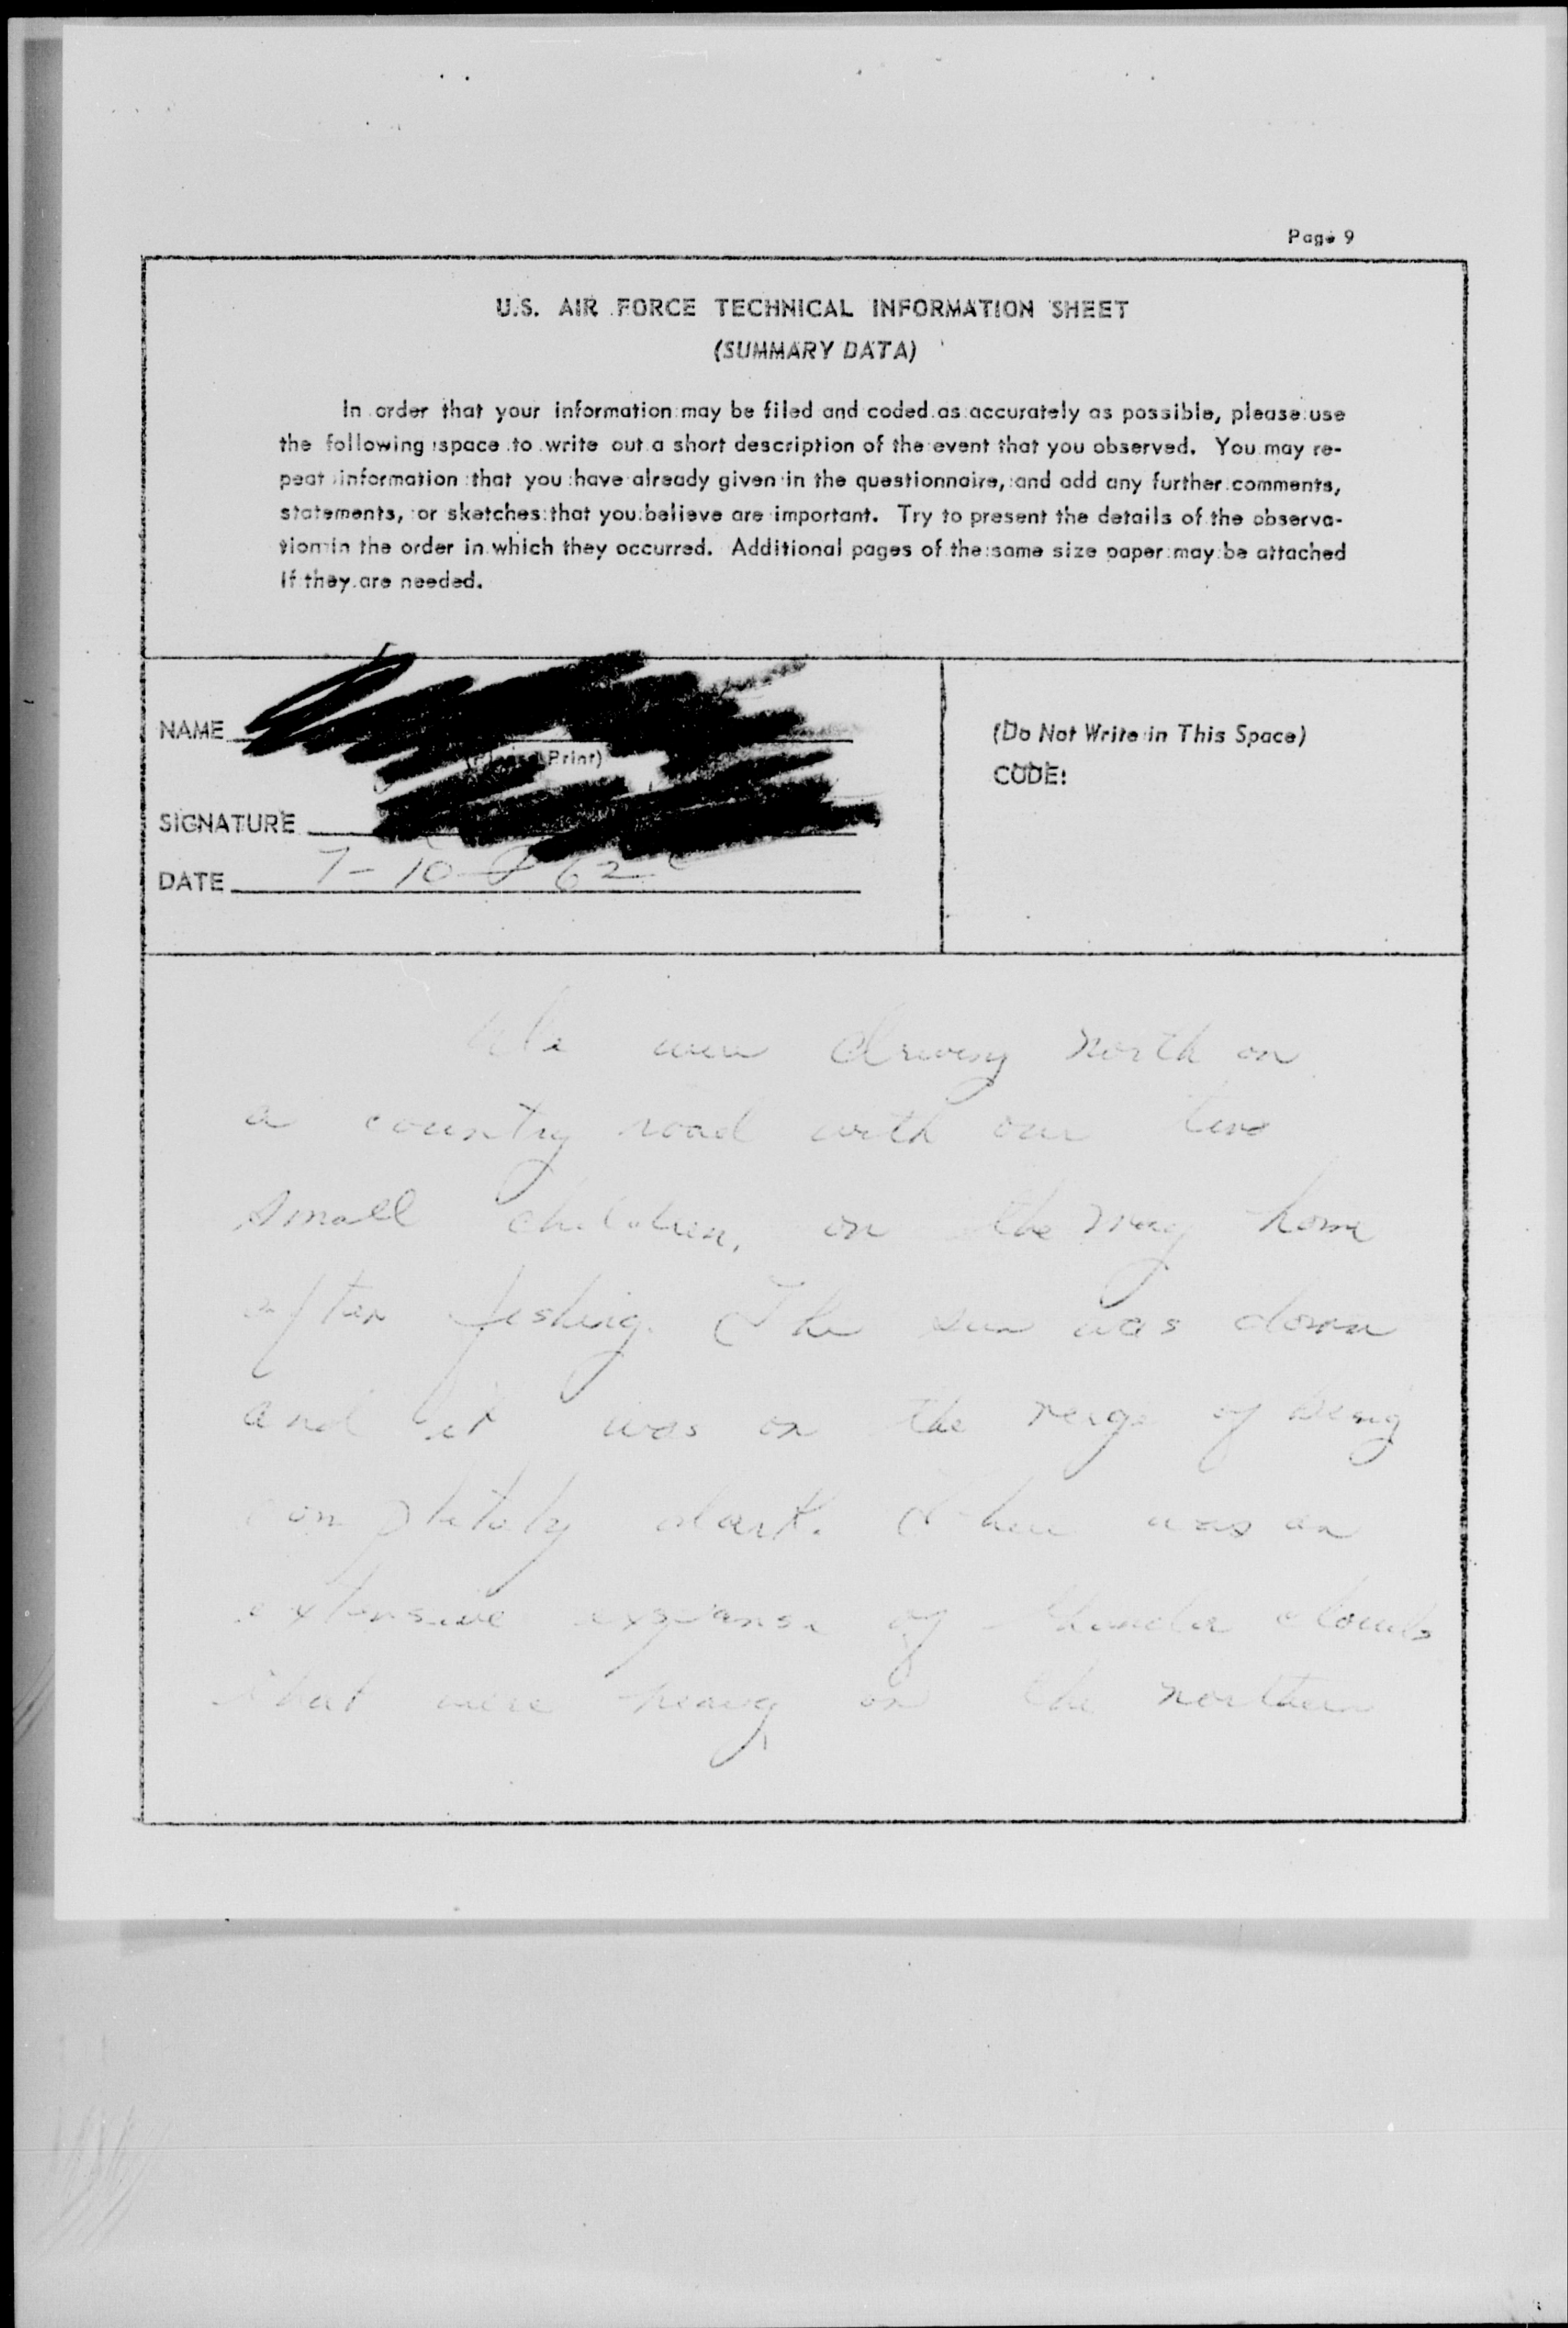 Page 9
U.S. AIR FORCE TECHNICAL INFORMATION SHEET
(SUMMARY DATA)
In order that your information may be filed and coded as accurately as possible, please use
the following space to write out a short description of the event that you observed. You may re-
peat information that you have already given in the questionnaire, and add any further comments,
statements, or sketches that you believe are important. Try to present the details of the observa-
tion in the order in which they occurred. Additional pages of the same size paper may be attached
if they are needed.
NAME
Print)
(Do Not Write in This Space)
CODE:
SIGNATURE
DATE 7-10 62
We were driving north on
a country road with our two
small children, on the way home
after fishing. The sun was down
and it was on the verge of being
completely dark. There was an
extensive expanse of thunder clouds
that were heavy on the northern